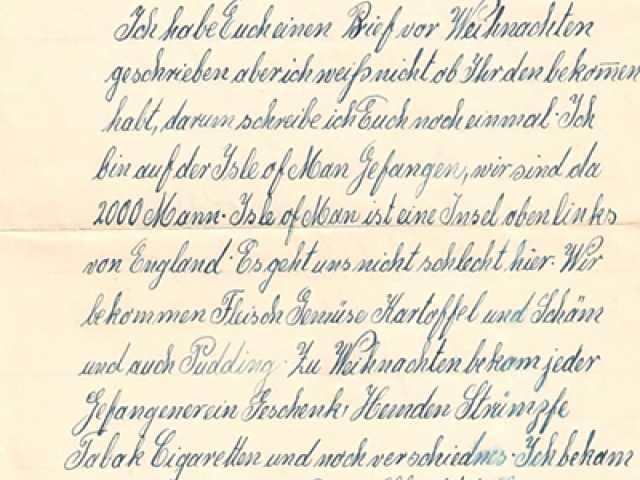 Ich habe Euch einen Brief vor Weihnachten
geschrieben aber ich weiß nicht ob Ihr den bekom̅en
habt, darum schreibe ich Euch noch einmal. Ich
bin auf der Isle of Man Gefangen, wir sind da
2000 Mann. Isle of Man ist eine Insel oben links
von England. Es geht uns nicht schlecht hier. Wir
bekommen Fleisch Gemüse Kartoffel und Schäm
und auch Pudding. Zu Weihnachten bekam jeder
Gefangener ein Geschenk, Hemden Strümpfe
Tabak Cigaretten und noch verschiednes. Ich bekam